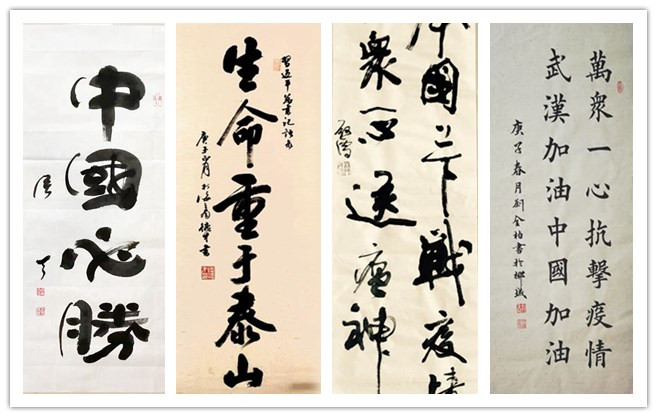 中國必勝
習近平總書記
生命重于泰山
庚子
中國上下戰疫情
衆一心送瘟神
萬衆一心抗擊疫情
武漢加油中國加油
庚子春月劉金柏書於